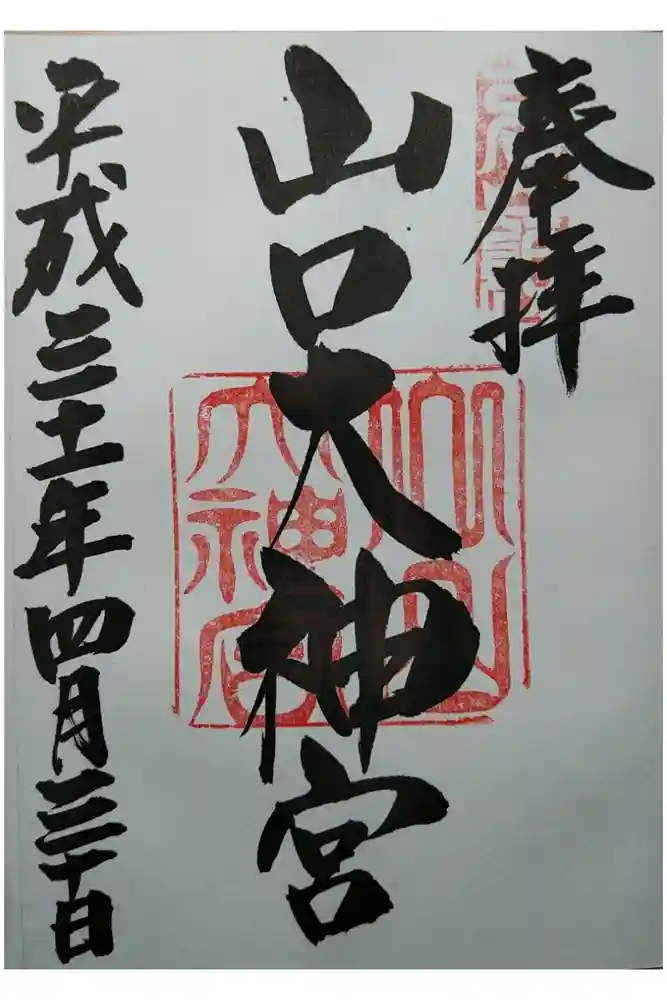 奉拝
山口大神宮
山口
大神宮
平成三十一年四月三十日